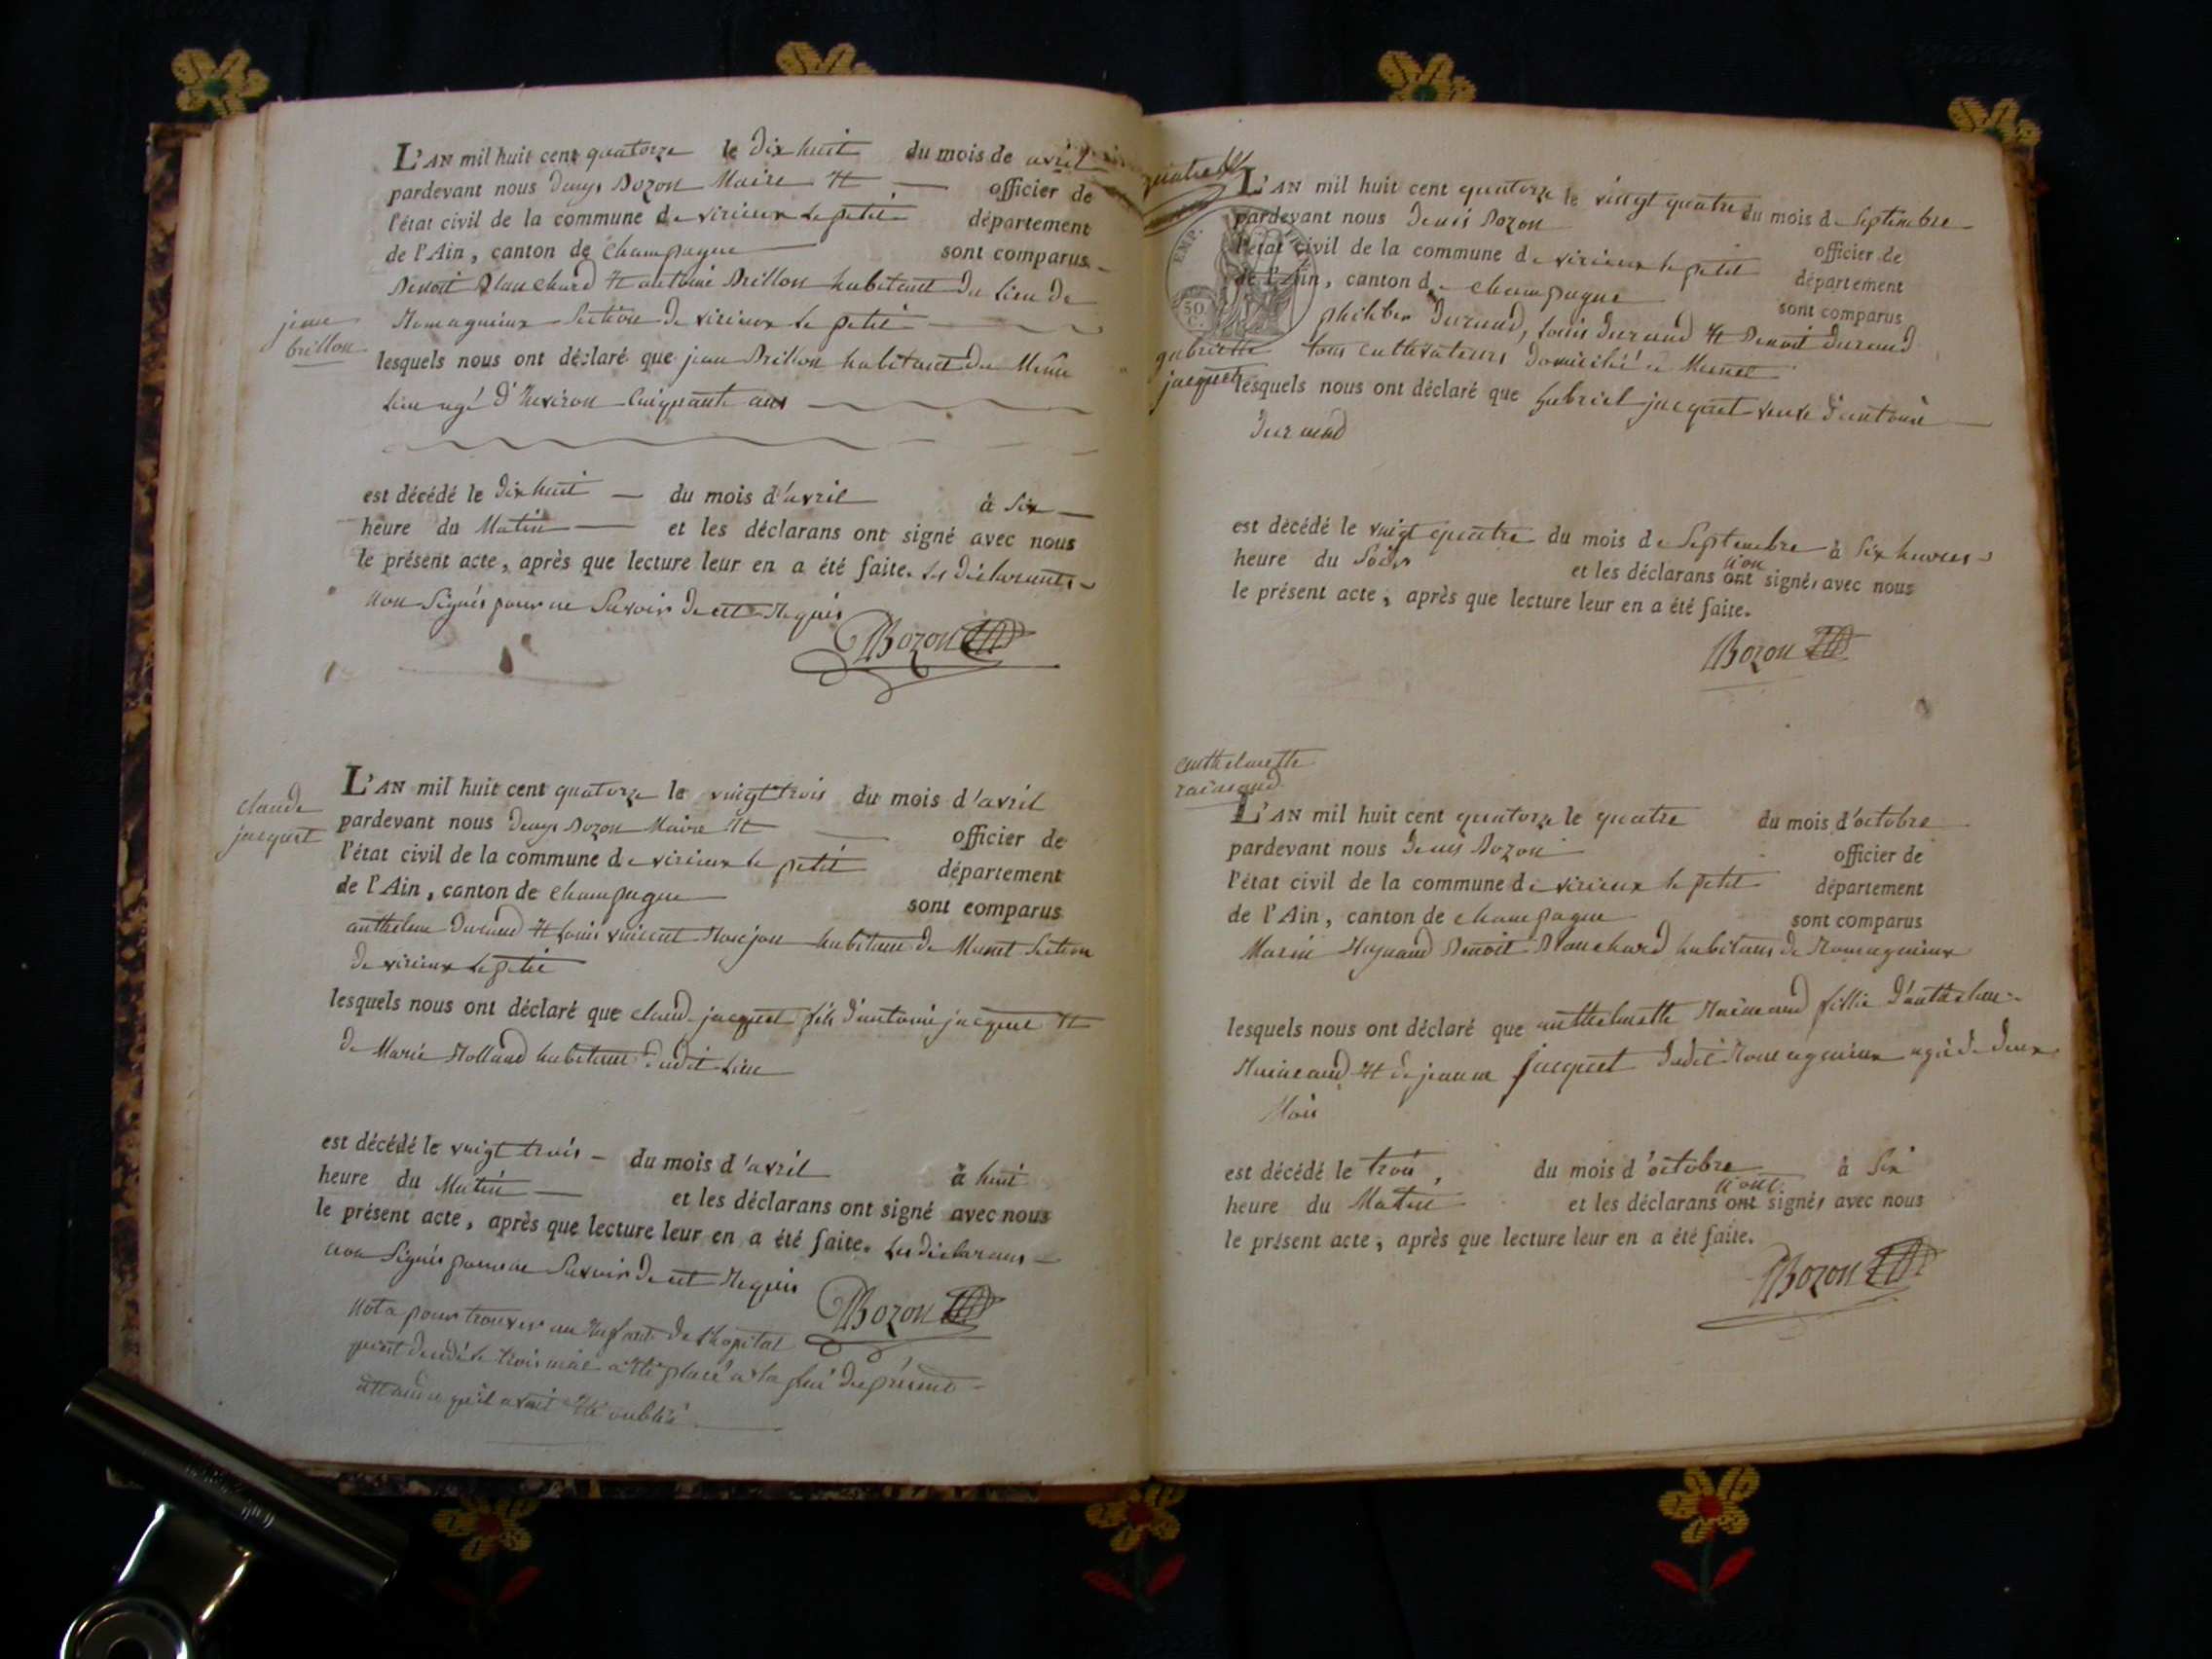 L'AN mil huit cent quatorze le dix huit du mois de avril
pardevant nous denys Bozon Maire et officier de
l'état civil de la commune de virieux le petit département
de l'Ain, canton de Champagne sont comparus
Benoit Blanchard et antoine Brillon habitant du lieu de
Romagnieux Section de virieux le petit
jean
brillon
lesquels nous ont déclaré que jean Brillon habitant du Même
lieu agé d'Environ Cinquante ans
est décédé le dix huit du mois d'avril à Six
heure du Matin et les déclarans ont signé avec nous
le présent acte, après que lecture leur en a été faite. Les déclarants
non Signés pour ne Savoir de ce Requis
Bozon
claude
jacquet
L'AN mil huit cent quatorze le vingt trois du mois d'avril
pardevant nous denys Bozon Maire et officier de
l'état civil de la commune de virieux le petit département
de l'Ain, canton de Champagne sont comparus
anthelme Durand et Louis vincent habitant de Munet Section
de virieux le petit
lesquels nous ont déclaré que claude jacquet fils d'antoine jacquet et
de Marie Rolland habitant dudit Lieu
est décédé le vingt trois du mois d'avril à huit
heure du Matin et les déclarans ont signé avec nous
le présent acte, après que lecture leur en a été faite. Les déclarans
non Signés pour ne Savoir de ce Requis
Bozon
Nota pour trouver un Enfant de l'hopital
décédé le trois mai a été placé a la fin du présent
attendu qu'il avait été oublié
EMP.
50
C.
L'AN mil huit cent quatorze le vingt quatre du mois de Septembre
pardevant nous Denis Bozon officier de
l'état civil de la commune de virieux le petit département
de l'Ain, canton de champagne sont comparus
philiber Durand, Louis Durand et Benoit Durand
tous cultivateurs domicilié a Munet
gabrielle
jacquet
lesquels nous ont déclaré que Gabriel jacquet veuve d'antoine
Durand
est décédé le vingt quatre du mois de Septembre à Six heures
heure du Soir et les déclarans ont non signés avec nous
le présent acte, après que lecture leur en a été faite.
Bozon
anthelmette
raimand
L'AN mil huit cent quatorze le quatre du mois d'octobre
pardevant nous Denis Bozon officier de
l'état civil de la commune de virieux le petit département
de l'Ain, canton de champagne sont comparus
Marin Benoit Blanchard habitans de Romagnieux
lesquels nous ont déclaré que anthelmette Raimand fillie d'anthelme
Raimand et de jeanne jacquet dudit Romagnieux agé de deux
Mois
est décédé le trois, du mois d'octobre à Six
heure du Matin et les déclarans ont n'ont signés avec nous
le présent acte, après que lecture leur en a été faite.
Bozon